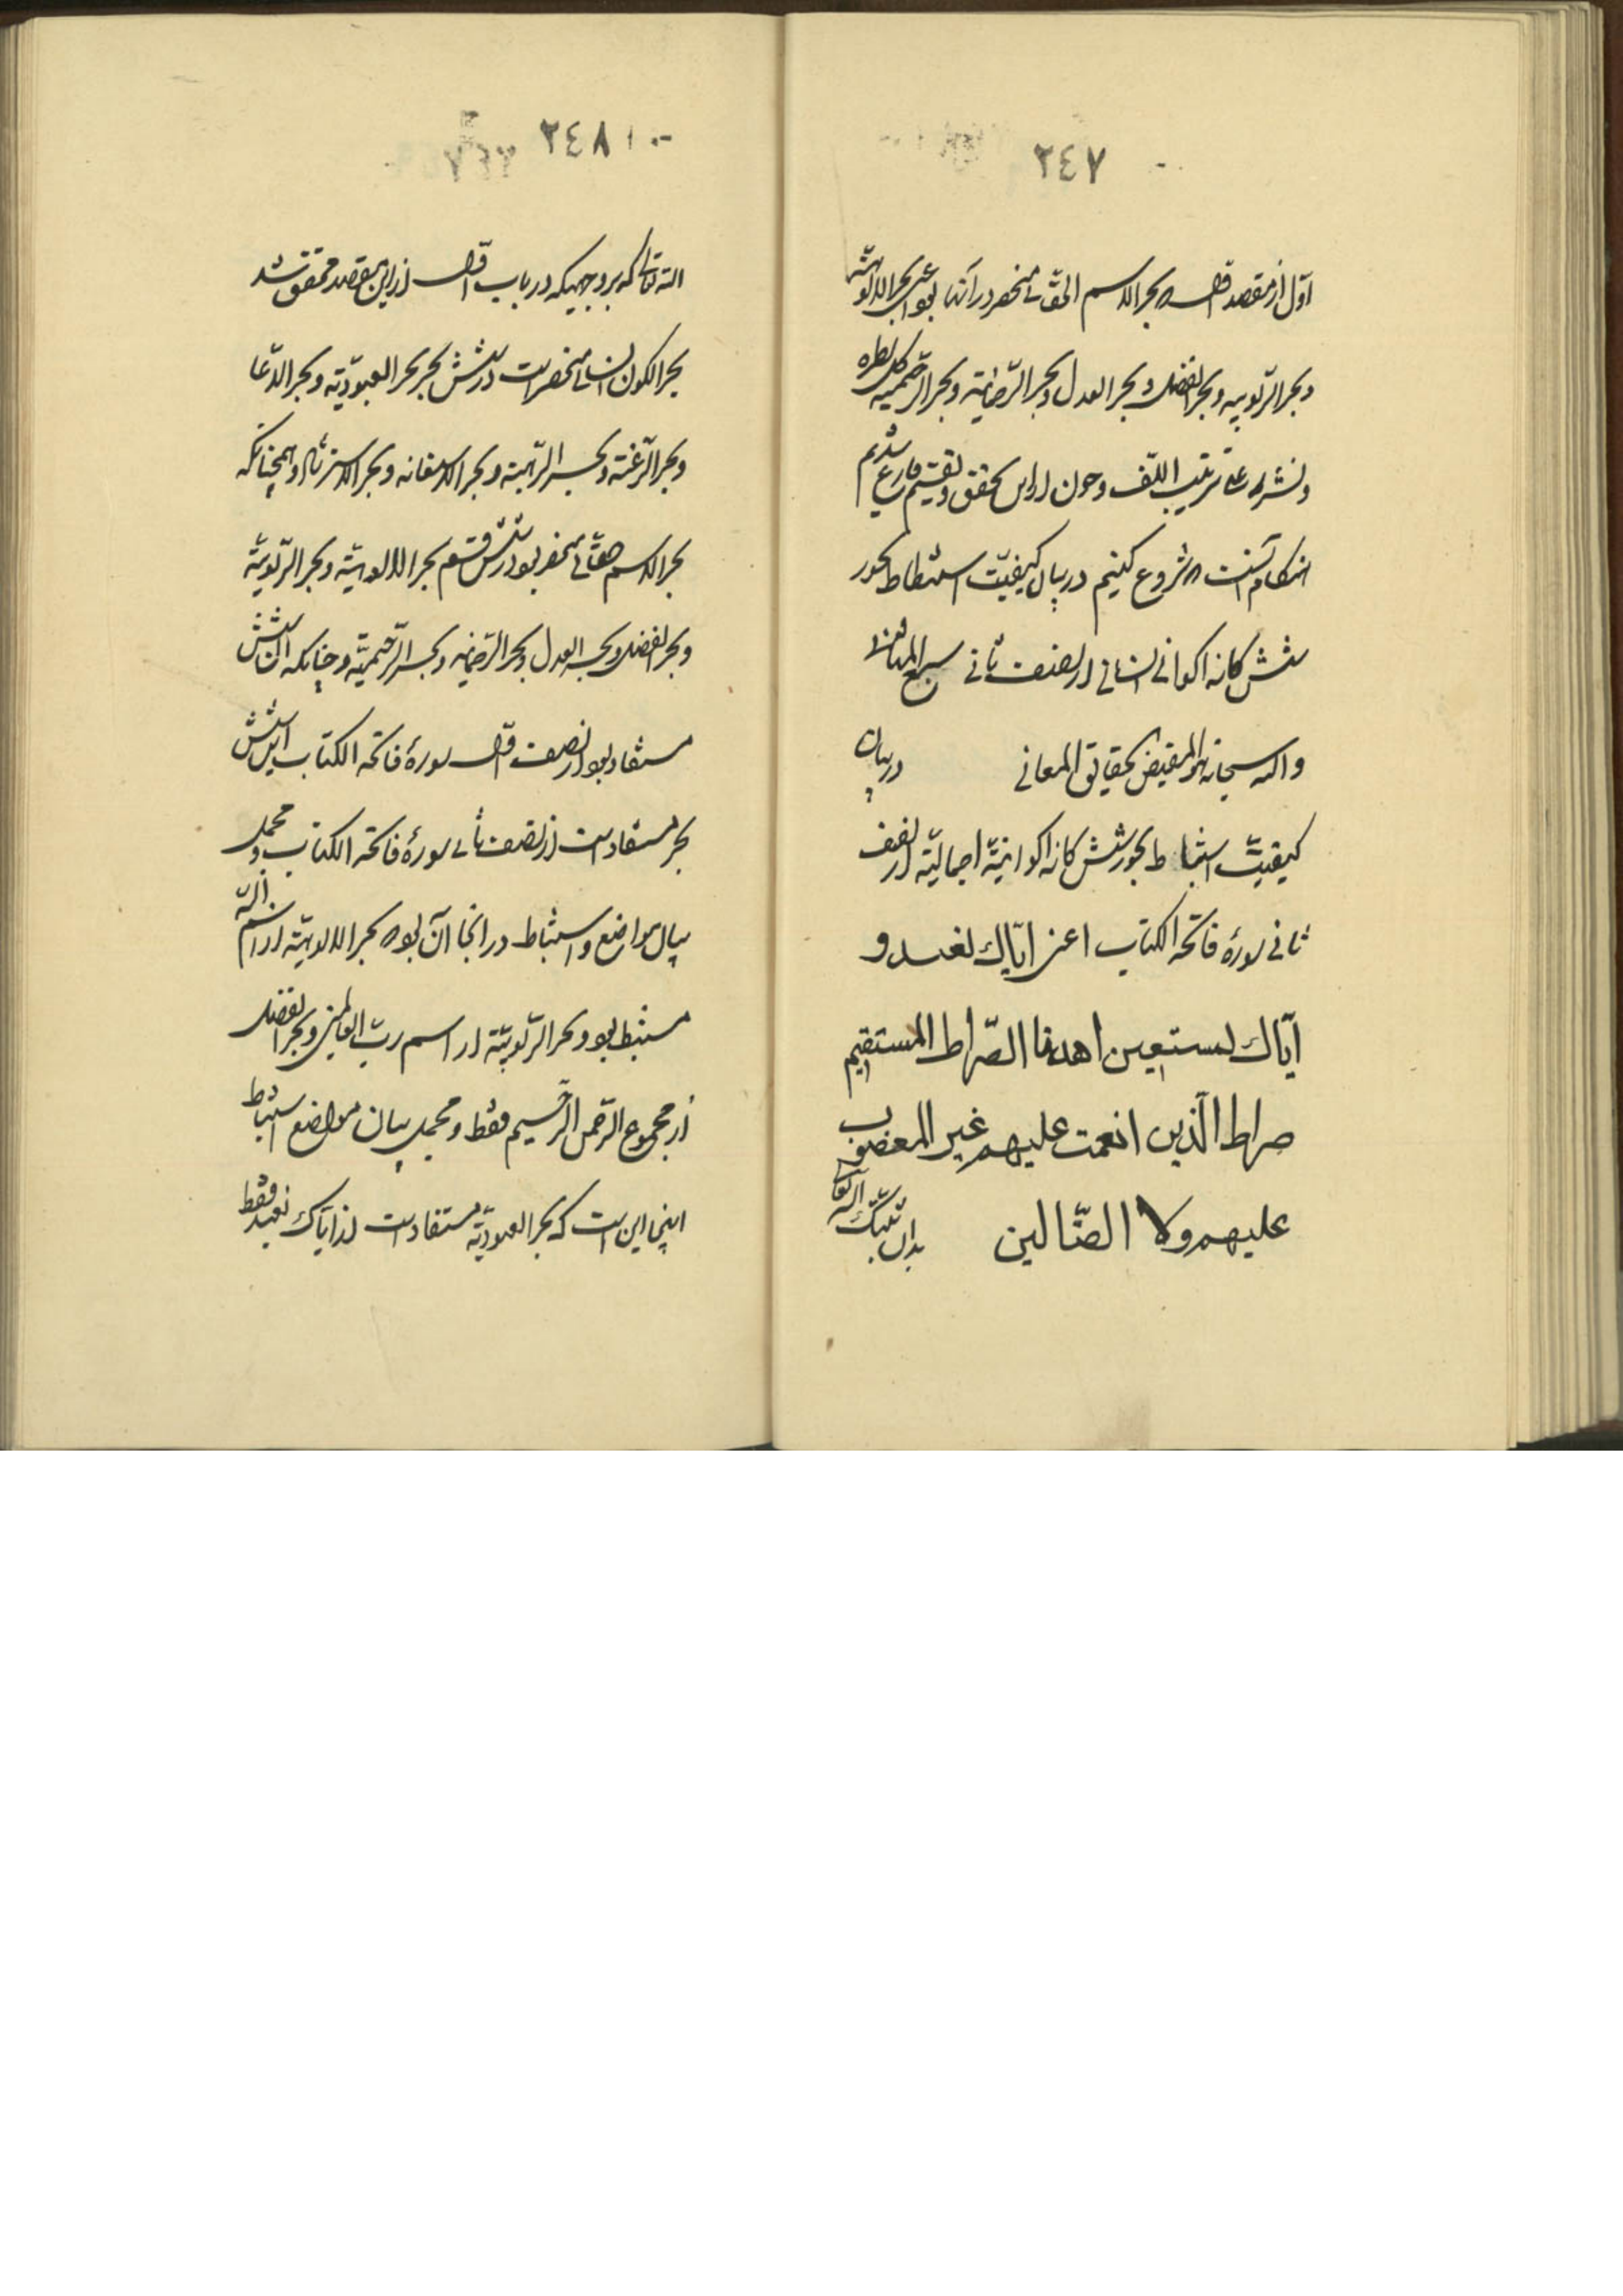 ٢٤٧
اوّل از مقصد اوّل که بحر الاسم الحقّانی منحصر در آنها بود اعنی بحر الالوهیّة
و بحر الرّبوبیه و بحر الفضل و بحر العدل و بحر الرّحمانیّة و بحر الرّحیمیّه کل نظره
و نشر علی ترتیب اللّف و چون از این تحقیق و تقسیم فارغ شدیم
هنگام آنست که شروع کنیم در بیان کیفیّت استنباط بحور
شش کانه اکوانی انسانی از نصف ثانی سبع المثانی
و الله سبحانه هو المفیض لحقایق المعانی در بیان
کیفیّت استنباط بحور شش کانه اکوانیّه اجمالیّه از نصف
ثانی سورهٔ فاتحه الکتاب اعنی ایّاک نعبد و
ایّاک نستعین اهدنا الصّراط المستقیم
صراط الّذین انعمت علیهم غیر المغضوب
علیهم ولا الضّالین بدان ثبّتک الله تعالی
٢٤٨
الله تعالی که بر وجهیکه در باب اوّل از این مقصد محقّق شد
بحر الکون انسانی منحصر است در شش بحر بحر العبودیّه و بحر الدّعا
و بحر الرّغبة و بحر الرّهبة و بحر الاستعانه و بحر الاسترشاد و همچنانکه
بحر الاسم حقّانی منحصر بود در شش قسم بحر الالوهیّة و بحر الرّبوبیّة
و بحر الفضل و بحر العدل و بحر الرّحمانیه و بحر الرّحیمیّه و چنانکه آن شش
مستفاد بود از نصف اوّل سورهٔ فاتحه الکتاب این شش
بحر مستفاد است از نصف ثانی سورهٔ فاتحه الکتاب و مجمل
بیان مواضع و استنباط در انجا آن بود که بحر الالوهیّة از اسم الله
مستنبط بود و بحر الرّبوبیّة از اسم ربّ العالمین و بحر الفضل
از مجموع الرّحمن الرّحیم فقط و مجمل بیان مواضع استنباط
اینجا این است که بحر العبودیّه مستفاد است از ایّاک نعبد فقط